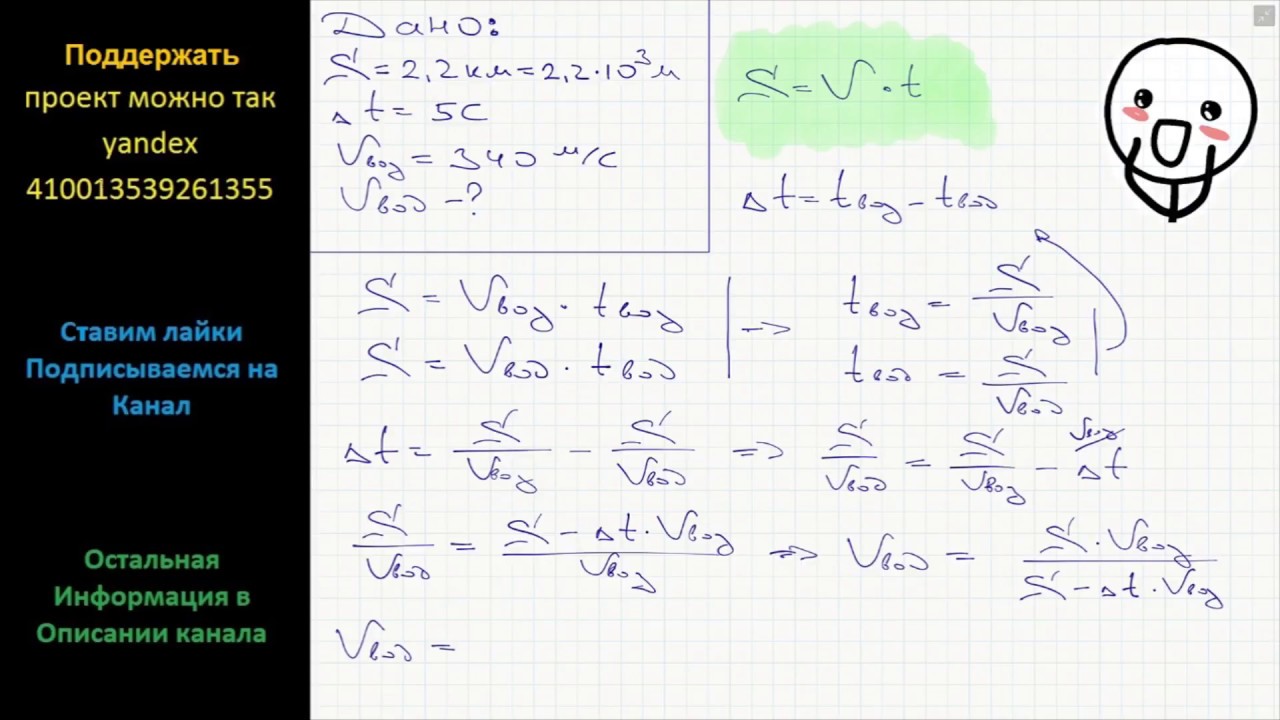 Поддержать
проект можно так
yandex
410013539261355
Ставим лайки
Подписываемся на
Канал
Остальная
Информация в
Описании канала
Дано:
S = 2,2 км = 2,2·10³ м
Δt = 5 с
Vвоз = 340 м/с
Vвод - ?
S = V · t
Δt = tвоз - tвод
S = Vвоз · tвоз | -> tвоз = S/Vвоз
S = Vвод · tвод | -> tвод = S/Vвод
Δt = S/Vвоз - S/Vвод => S/Vвод = S/Vвоз - Δt Vвоз
S/Vвод = (S - Δt · Vвоз)/Vвоз => Vвод = (S · Vвоз)/(S - Δt · Vвоз)
Vвод =